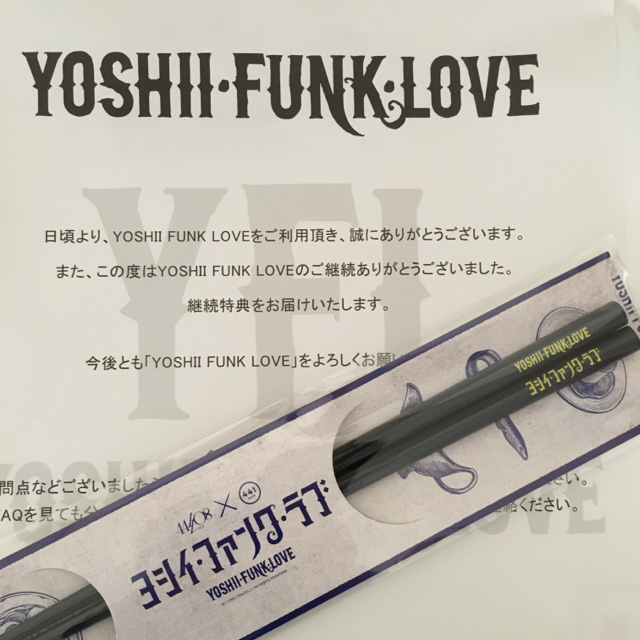 YOSHII・FUNK・LOVE
YFL
日頃より、YOSHII FUNK LOVEをご利用頂き、誠にありがとうございます。
また、この度はYOSHII FUNK LOVEのご継続ありがとうございました。
継続特典をお届けいたします。
今後とも「YOSHII FUNK LOVE」をよろしくお願い
YOSHII・FUNK・LOVE
ヨシイ・ファンク・ラブ
問点などございました
AQを見ても
ください。
LOVE
ヨシイ・ファンク・ラブ
YOSHII・FUNK・LOVE